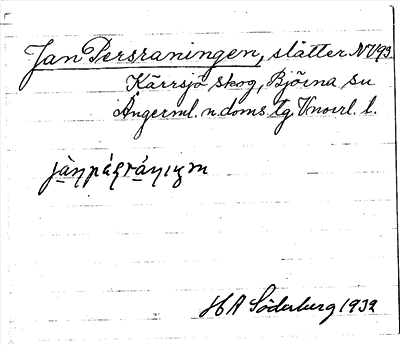 Jan Persraningen, slåtter NV93
Kärrsjö skog, Björna su
Ångerml. n. doms. tg. Vnorrl. l.
H A Söderberg 1932